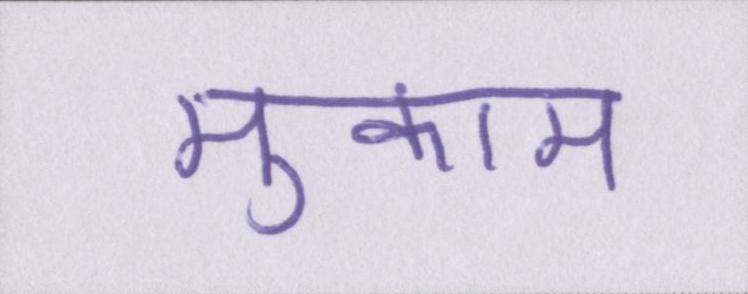 मुकाम